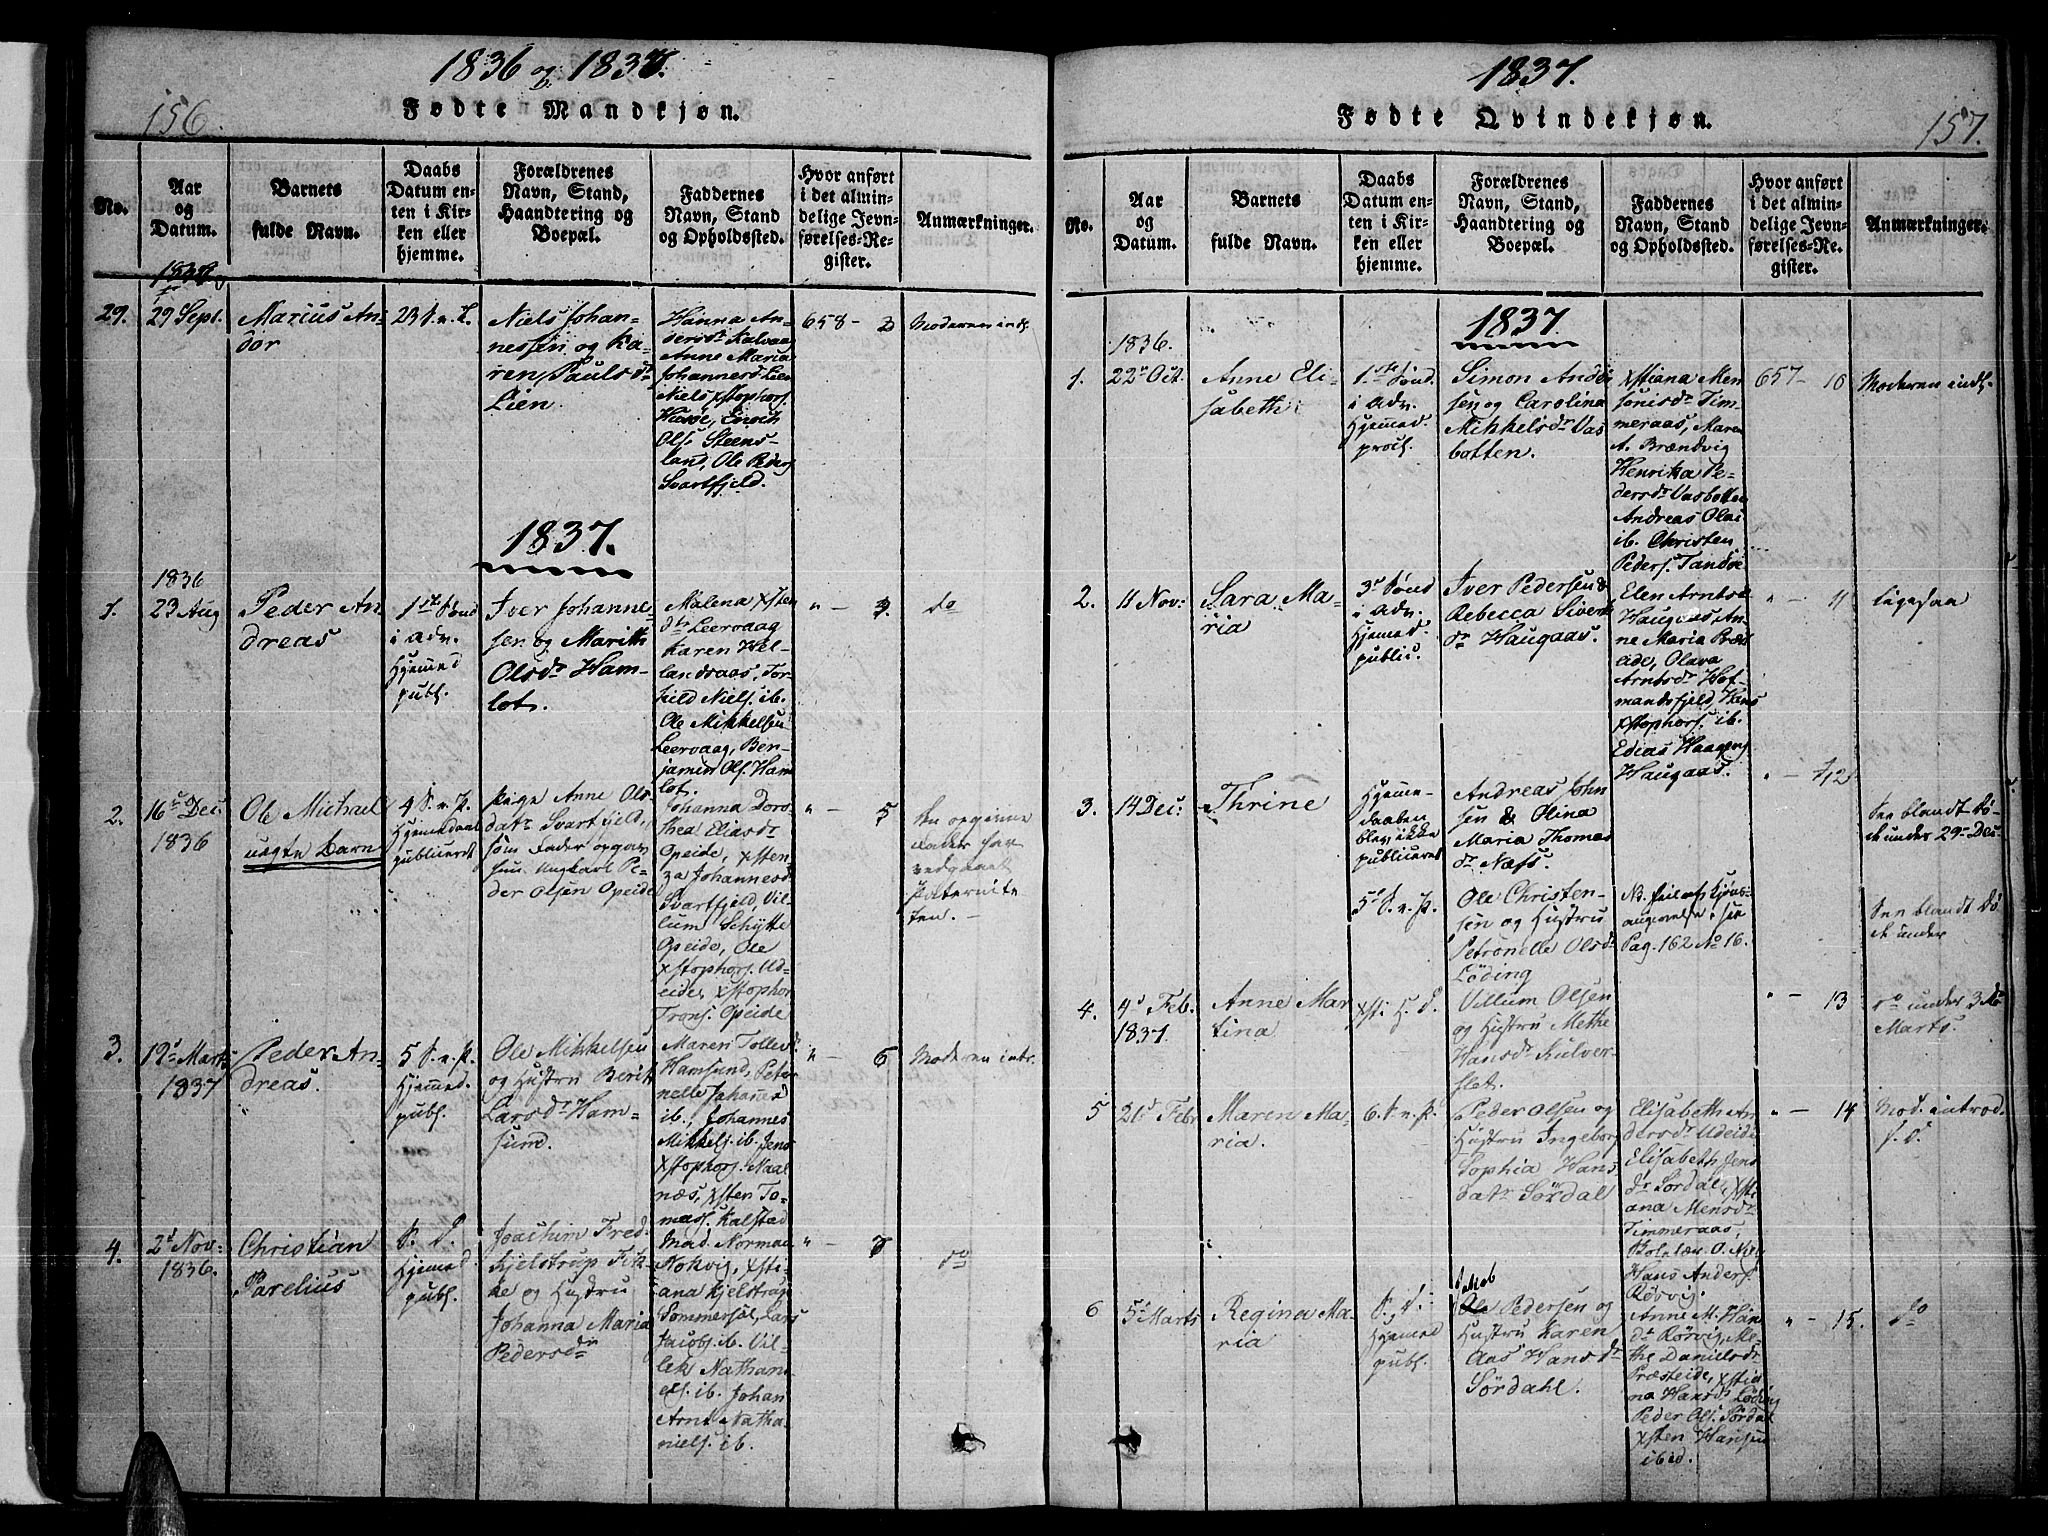 1836 og 1837.
156.
Fødte Mandkjøn.
No.
Aar
og
Datum.
Barnets
fulde Navn.
Daabs
Datum en-
ten i Kir-
ken eller
hjemme.
Forældrenes
Navn, Stand,
Haandtering og
Boepæl.
Faddernes
Navn, Stand
og Opholdssted.
Hvor anført
i det almin-
delige Jevn-
førelses-Re-
gister.
Anmærkninger.
29.
29 Sept.
Marius An-
dor
23 S. e. T.
Niels Johan-
nessen og Ka-
ren Paulsdr
Lien
Hanna An-
dersdr Kalvaa
Anne Maria
Johannesd. Lien
Niels Xstophers.
Hasse, Enoch
Ols. Steens-
land, Ole Peders.
Svartfjeld.
658 - 2
Moderen indl.
1837.
1.
1836
23 Aug
Peder An-
dreas
1ste Sønd
i Adv.
Hjemmed
publ.
Iver Johanne-
sen og Marith
Olsdr Ham-
lot.
Malena Xsten
dtr Leervaag
Karen Hel-
landsaas, Tor-
kild Niels. ib.
Ole Mikkelsen
Leervaag, Ben-
jamin Ols. Ham
lot.
" - 3.
do
2.
16de Dec.
1836
Ole Michael
uægte Barn
4 S. e. P.
Hjemmedaab
publiceret
Pige Anne Ols-
datr Svartfjeld,
som Fader opgav
hun Ungkarl Pe-
der Olsen Opeide
Johanna Doro-
thea Eliasdr
Opeide, Xsten-
za Johannesd.
Svartfjeld, Vil-
lum Schytte
Opeide, Ole
Xstophers. Ud-
eide, Xstopher
Trons. Opeide
" - 5
Den opgivne
Fader har
vedgaaet
Paternite-
ten. -
3.
19de Marts
1837
Peder An-
dreas.
5 S. e. P.
Hjemmed.
publ.
Ole Mikkelsen
og Hustru Berit
Larsdr Ham-
sund.
Maren Tollevd.
Hamsund, Peter
nelle Johannesd
ib., Johannes
Mikkels. ib. Jens
Xstophers. Naal
næs, Xsten To-
mass. Kalstad
" - 6
Moderen intr.
4.
2d Nov:
1836.
Christian
Parelius
S. D.
Hjemmed
publ.
Joachim Fred-
Kjelstrup Fik-
ke og Hustru
Johanna Maria
Pedersdr
Mad. Norman
Nokvig, Xsti-
ana Kjelstrup
Sommersel, Lars
Jacobs. ib. Vil-
lek Nathani-
els. ib. Johan
Arnt Natha
niels. ib.
" - 7
do
1837.
157.
Fødte Qvindekjøn.
No.
Aar
og
Datum.
Barnets
fulde Navn.
Daabs
Datum en-
ten i Kir-
ken eller
hjemme.
Forældrenes
Navn, Stand,
Haandtering og
Boepæl.
Faddernes
Navn, Stand
og Opholdssted.
Hvor anført
i det almin-
delige Jevn-
førelses-Re-
gister.
Anmærkninger.
1837.
1.
1836.
22de Oct.
Anne Eli-
sabeth
1ste Sønd.
i Adv.
Hjemmed.
procl.
Simon Andør
sen og Carolina
Mikkelsdr Vas
botten.
Xstiana Men-
sønisdr Tim-
meraas, Maren
A. Brændvig
Henrika Pe-
dersdr Vasbotten
Andreas Olai
ib. Christen
Peders. Tandøe
657 - 10
Moderen indl.
2.
11 Nov:
Sara Ma-
ria
3de Sønd
i Adv.
Hjemmed.
public.
Iver Pedersen &
Rebecca Siverts
dr Haugaas.
Elen Arntsdr
Haugaas An-
ne Maria Præst
eide, Olava
Arntsdr Hof-
mandsfjeld, Hans
Xstophers. ib.
Edias Haagens.
Haugaas.
" - 11
ligesaa
3.
14 Dec.
Thrine
Hjemme-
daaben
blev ikke
publiceret
Andreas Ohn
sen & Olina
Maria Thomas
dr Næss.
" - 12
See blandt Dø-
de under 29de Dec.
5te S. e. P.
Ole Christen-
sen og Hustru
Petronelle Olsdr
Løding
N. feil af Kjøns-
angivelse, see
Pag. 162 No 16.
See blandt Dø
de under
4.
4d Feb.
1837.
Anne Mar
tina
Xsti H. D.
Villum Olsen
og Hustru Methe
Hansdr Kulver-
slet.
" - 13
do under 3de
Marts.
5
21de Febr
Maren Ma-
ria.
6. S. e. P.
Peder Olsen og
Hustru Ingeborg
Sophia Hans
datr Sørdal
Elisabeth An
dersdr Udeide
Elisabeth Jens
dr Sørdal, Xsti
ana Mensdr
Timmeraas,
Hans Anders.
Rørvig.
" - 14
Mod. introd.
s. D.
6
5te Marts
Regina Ma-
ria
S. D.
Hjemmed
publ.
Jakob
Ole Pedersen og
Hustru Karen
Aas Hansdr
Sørdahl.
Anne M. Han
dr Rørvig, Me-
the Danielsdr
Præsteide, Xstia
na Hansd. Løding
Peder Ols. Sørdal
Xsten Hansen
ibid.
" - 15.
do